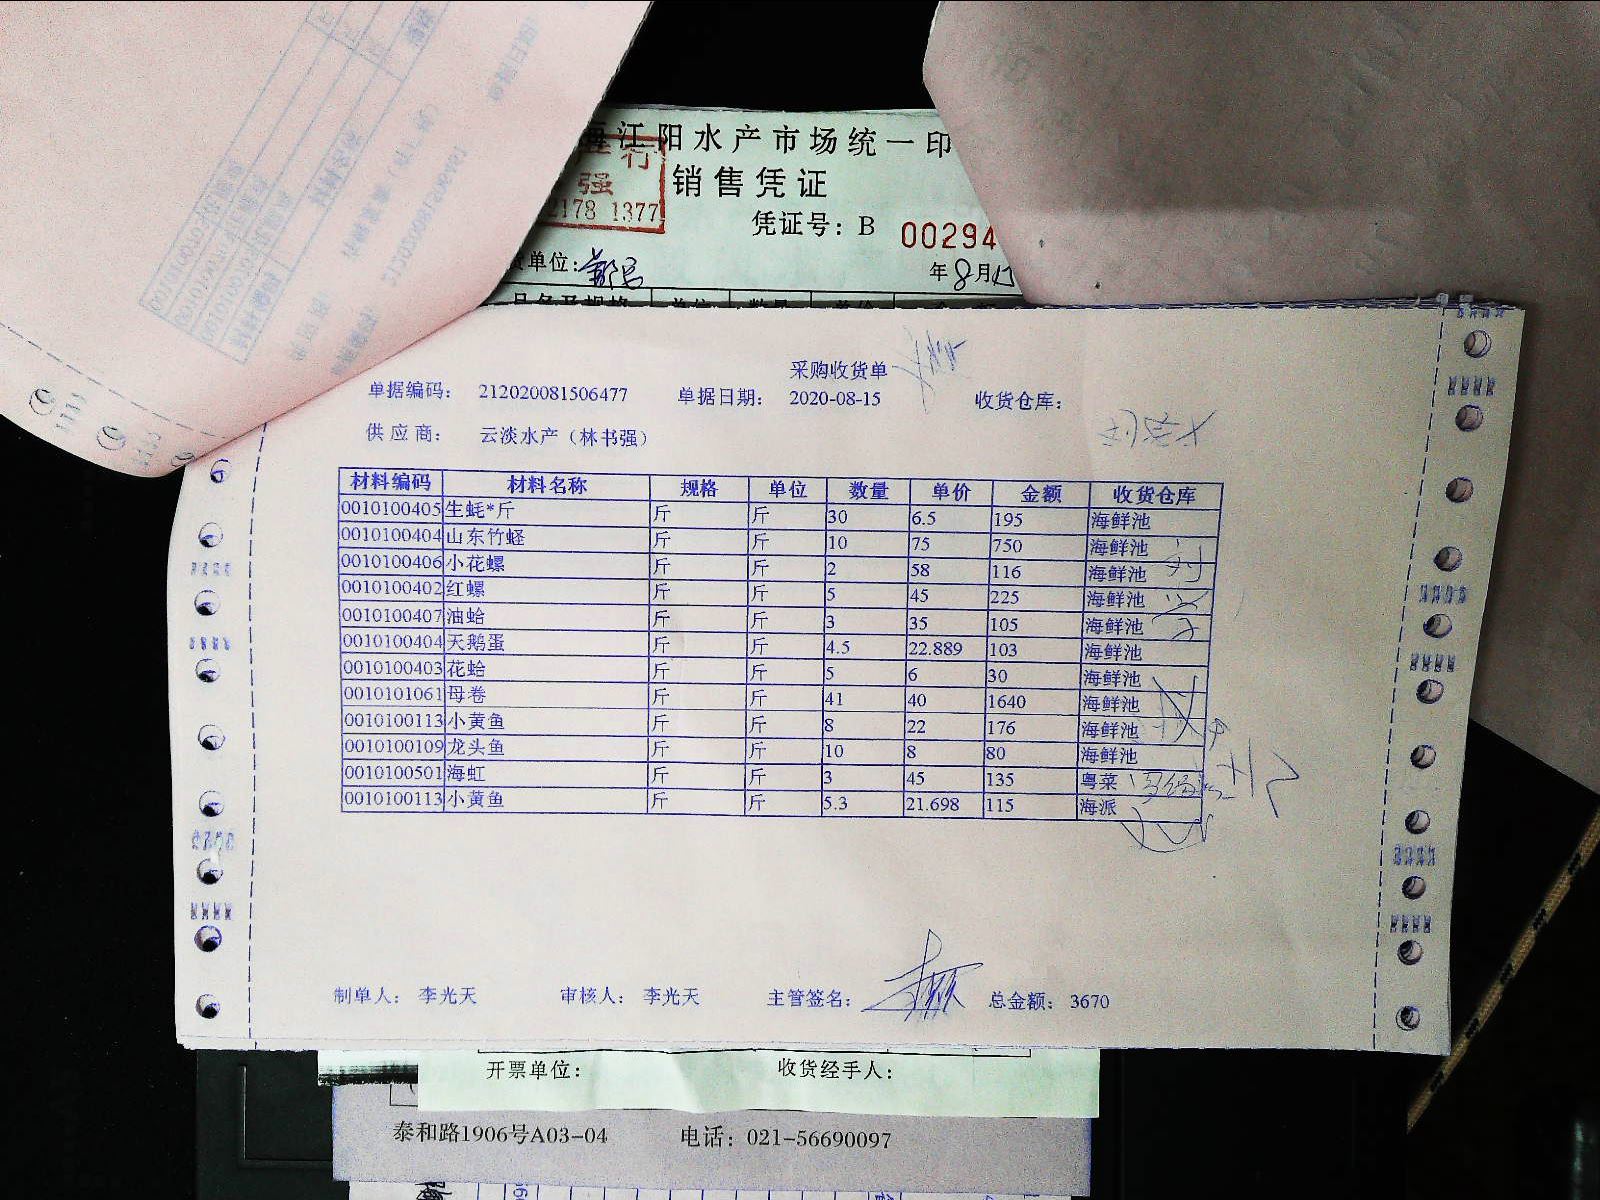 海江阳水产市场统一印
销售凭证
强
2178 1377
凭证号：B 00294
货单位：
年8月
采购收货单
单据编码： 212020081506477 单据日期： 2020-08-15 收货仓库：
供应商： 云淡水产（林书强）
材料编码 材料名称 规格 单位 数量 单价 金额 收货仓库
0010100405 生蚝*斤 斤 斤 30 6.5 195 海鲜池
0010100404 山东竹蛏 斤 斤 10 75 750 海鲜池
0010100406 小花螺 斤 斤 2 58 116 海鲜池
0010100402 红螺 斤 斤 5 45 225 海鲜池
0010100407 油蛤 斤 斤 3 35 105 海鲜池
0010100404 天鹅蛋 斤 斤 4.5 22.889 103 海鲜池
0010100403 花蛤 斤 斤 5 6 30 海鲜池
0010101061 母卷 斤 斤 41 40 1640 海鲜池
0010100113 小黄鱼 斤 斤 8 22 176 海鲜池
0010100109 龙头鱼 斤 斤 10 8 80 海鲜池
0010100501 海虹 斤 斤 3 45 135 粤菜
0010100113 小黄鱼 斤 斤 5.3 21.698 115 海派
制单人： 李光天 审核人： 李光天 主管签名： 总金额： 3670
开票单位： 收货经手人：
泰和路1906号A03-04 电话：021-56690097